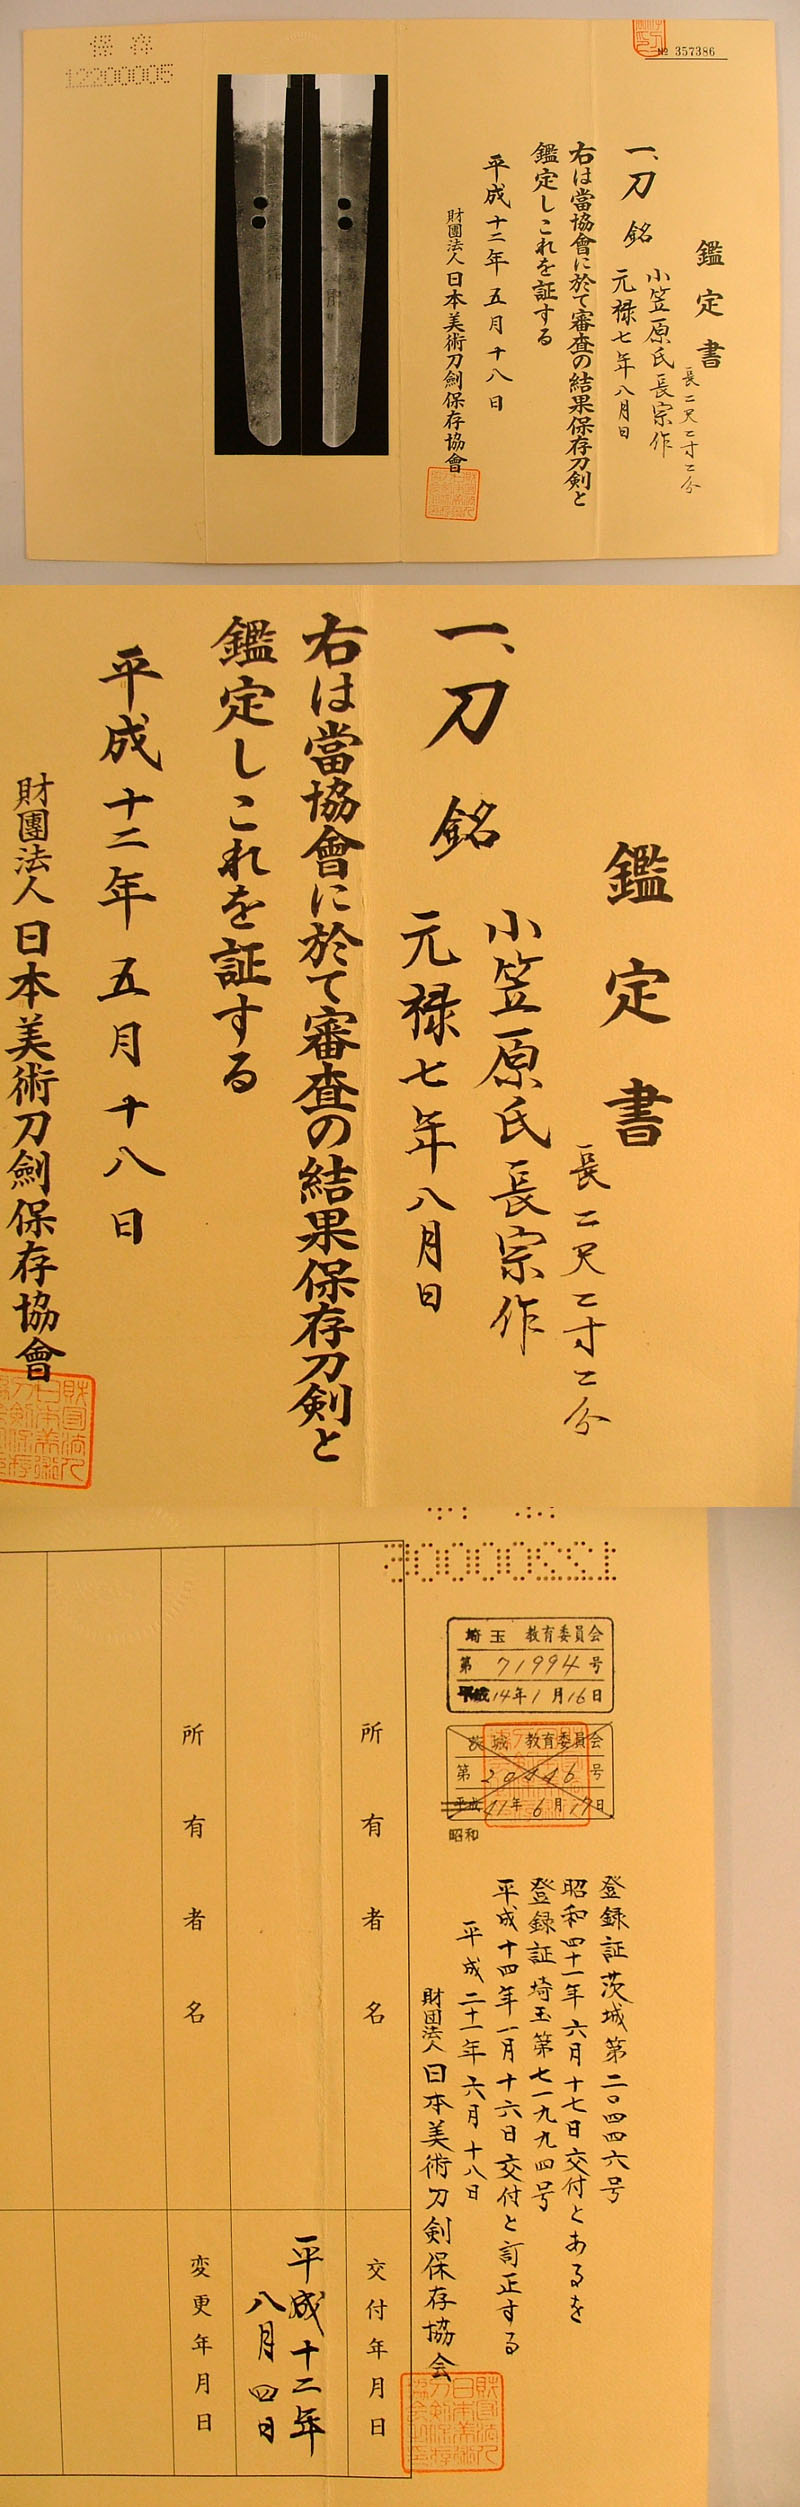 保存
12200005
№ 357386
鑑定書
長二尺二寸二分
一、刀 銘
小笠原氏長宗作
元禄七年八月日
右は當協會に於て審査の結果保存刀剣と
鑑定しこれを証する
平成十二年五月十八日
財團法人日本美術刀劍保存協會
鑑定書
長二尺二寸二分
一、刀 銘
小笠原氏長宗作
元禄七年八月日
右は當協會に於て審査の結果保存刀剣と
鑑定しこれを証する
平成十二年五月十八日
財團法人日本美術刀劍保存協會
12200005
埼玉 教育委員会
第 71994 号
平成14年1月16日
茨城 教育委員会
第 20446 号
平成41年6月17日
昭和
登録証茨城第二〇四四六号
昭和四十一年六月十七日交付とあるを
登録証埼玉第七一九九四号
平成十四年一月十六日交付と訂正する
平成二十一年六月十八日
財団法人日本美術刀剣保存協会
所有者名
交付年月日
平成十二年
八月四日
所有者名
変更年月日